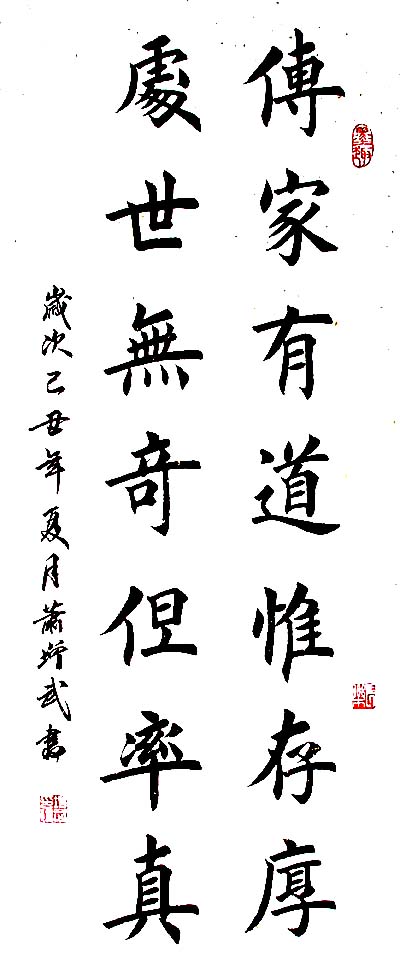 傳家有道惟存厚
處世無竒但率真
歲次己丑年夏月蕭武書